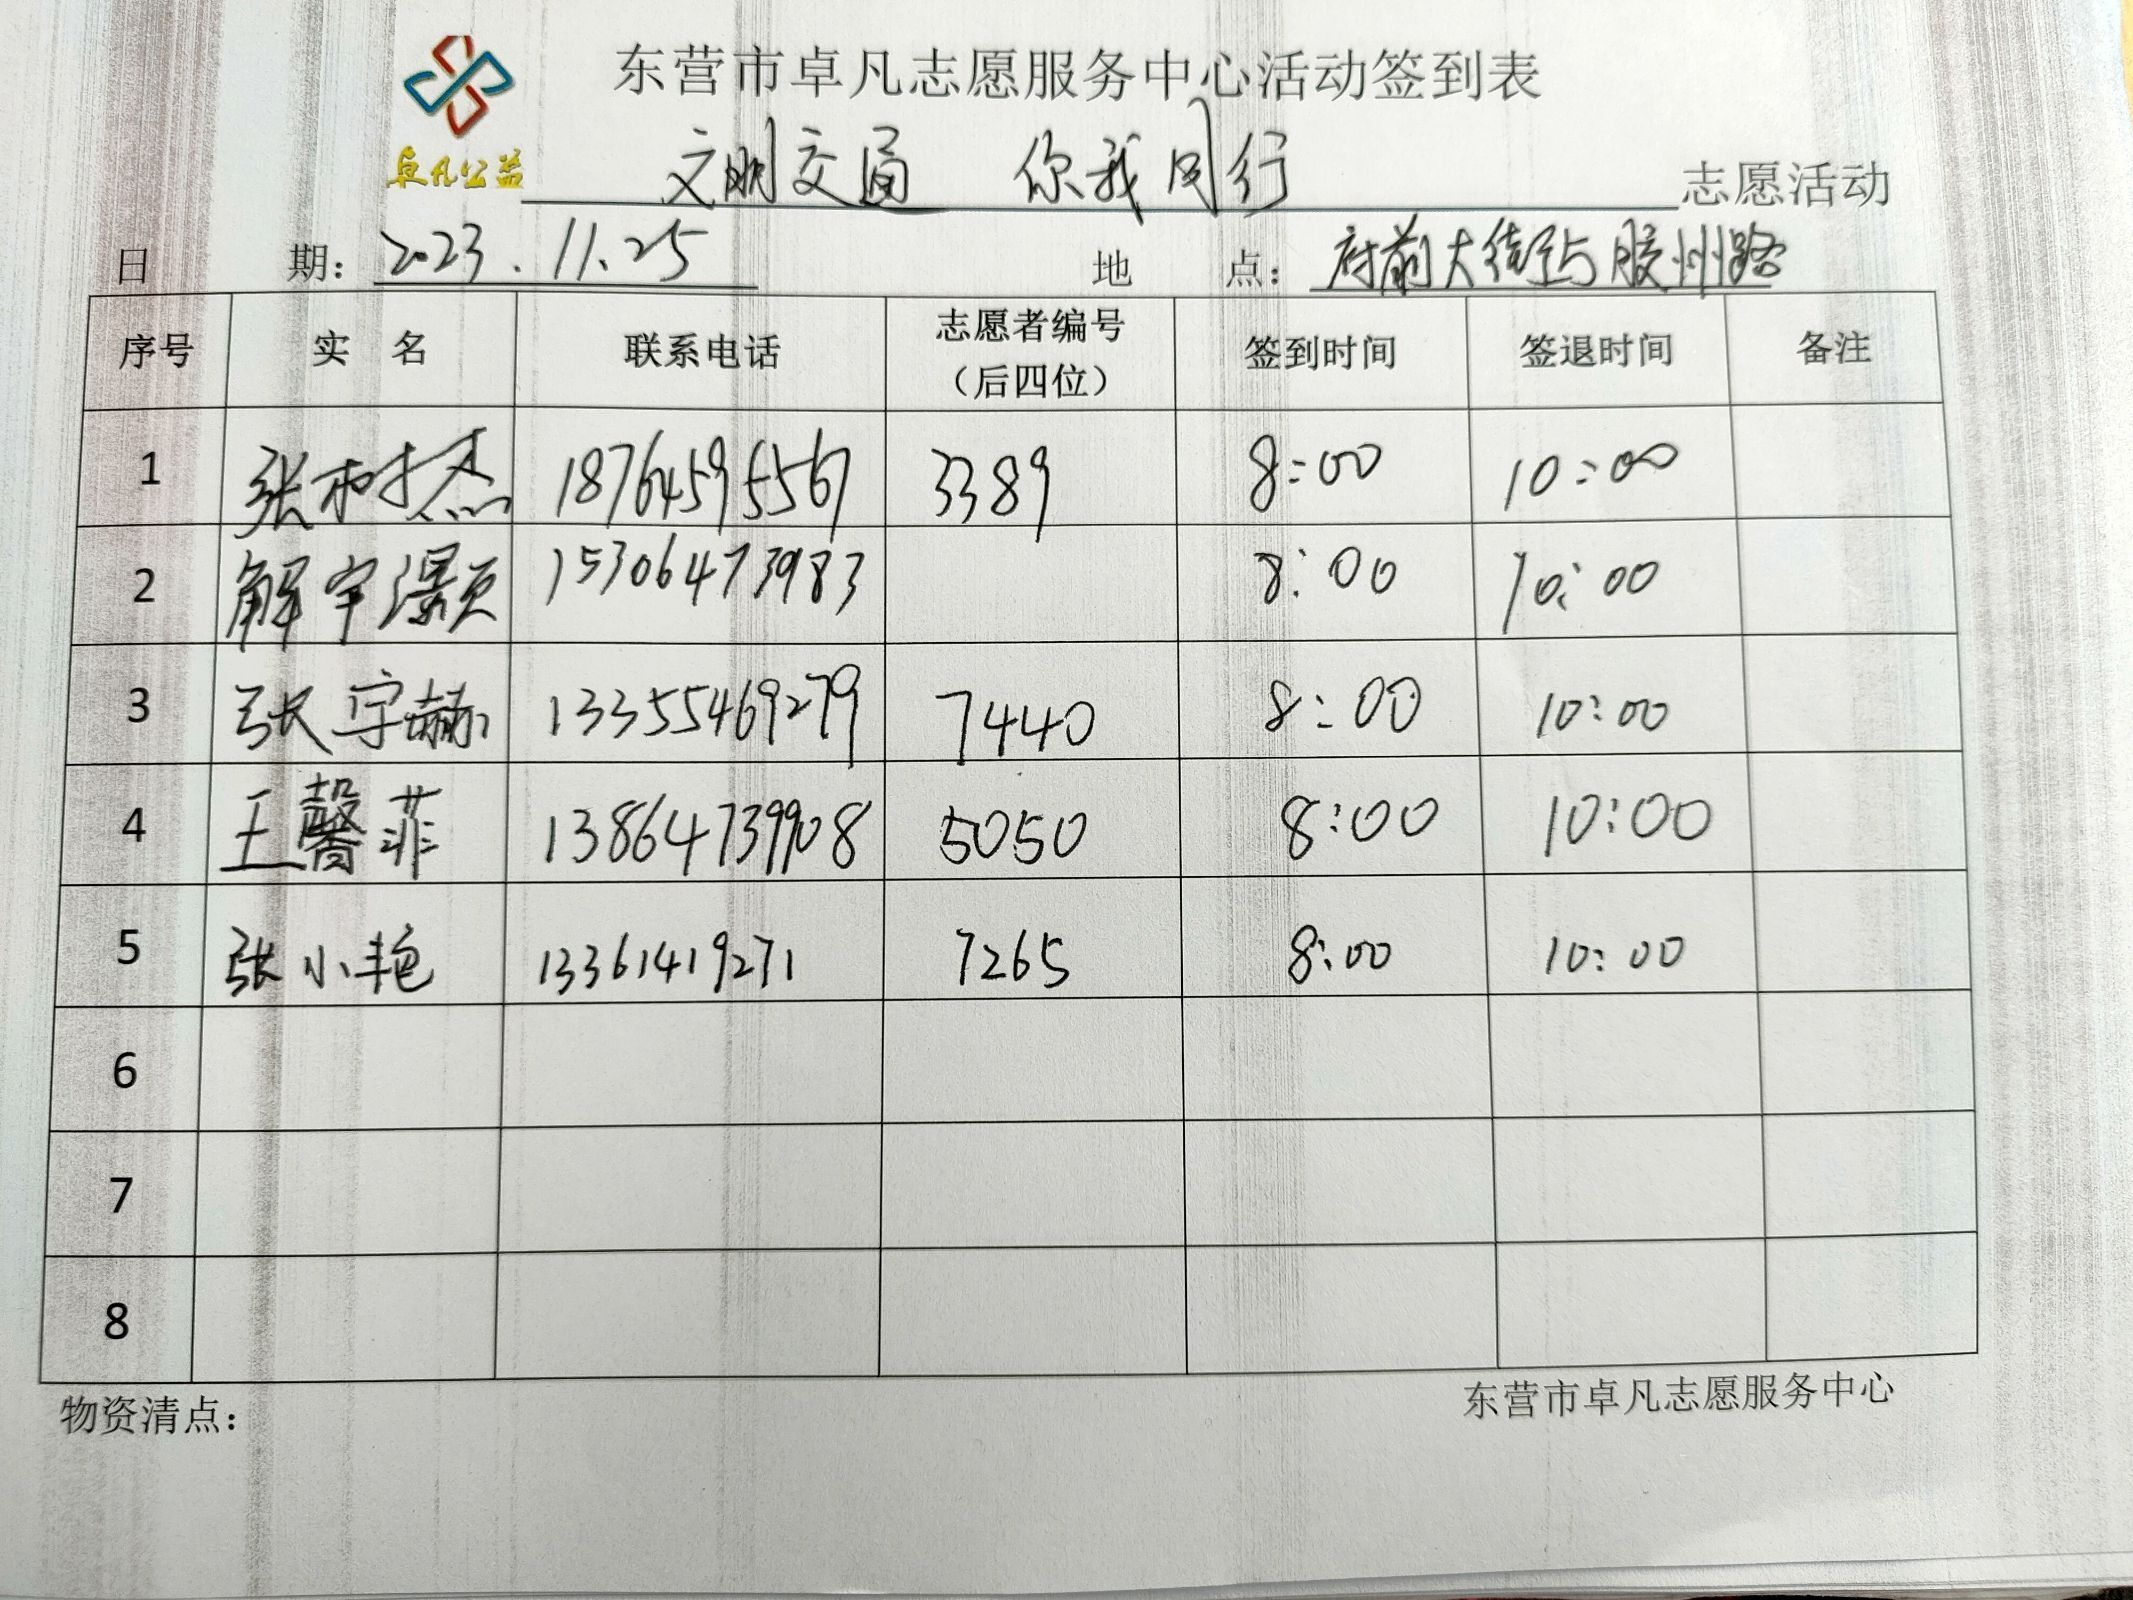 东营市卓凡志愿服务中心活动签到表
卓凡公益
文明交通 你我同行 志愿活动
日 期：2023.11.25 地 点：府前大街与胶州路
序号 实 名 联系电话 志愿者编号（后四位） 签到时间 签退时间 备注
1 张树杰 18764595567 3389 8:00 10:00
2 解宇灏 15306473983 8:00 10:00
3 张宇赫 13355469279 7440 8:00 10:00
4 王馨菲 13864739908 5050 8:00 10:00
5 张小艳 13361419271 7265 8:00 10:00
6
7
8
物资清点： 东营市卓凡志愿服务中心